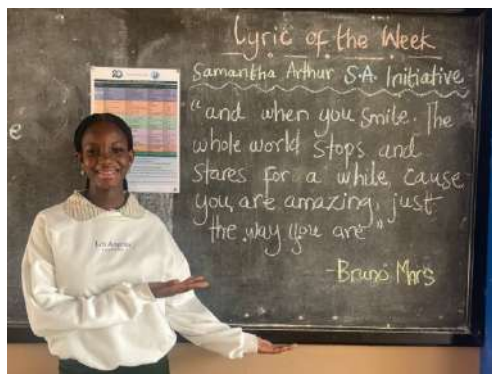 Lyric of the Week
Samantha Arthur S.A. Initiative
"and when you smile. The
whole world stops and
stares for a while, cause
you are amazing, just
the way you are"
-Bruno Mars
e
Los Angeles